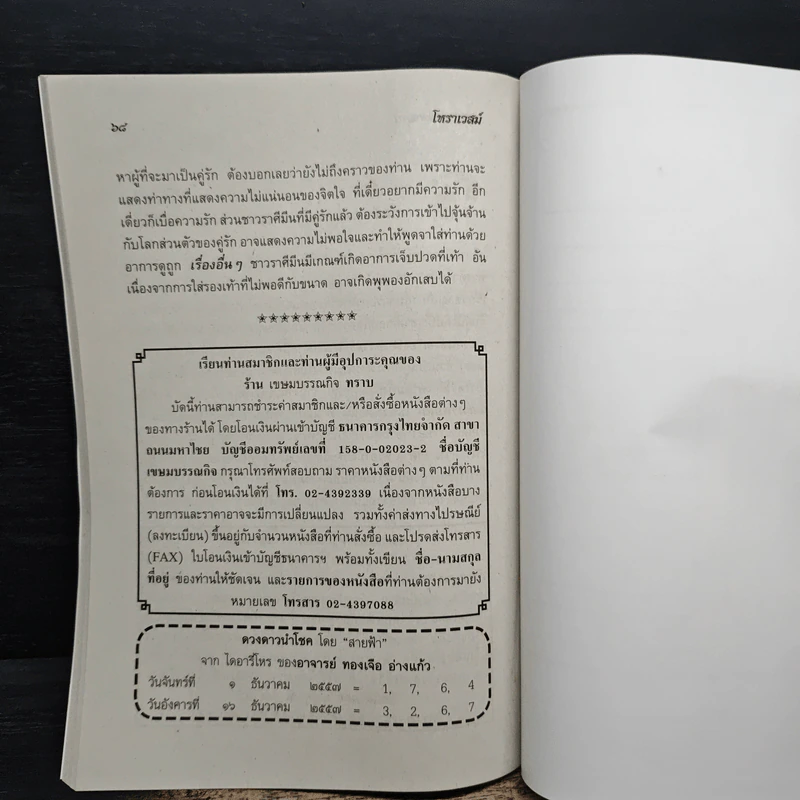 ๖๘ โหราเวสม์
หาผู้ที่จะมาเป็นคู่รัก ต้องบอกเลยว่ายังไม่ถึงคราวของท่าน เพราะท่านจะ
แสดงท่าทางที่แสดงความไม่แน่นอนของจิตใจ ที่เดี๋ยวอยากมีความรัก อีก
เดี๋ยวก็เบื่อความรัก ส่วนชาวราศีมีนที่มีคู่รักแล้ว ต้องระวังการเข้าไปจุ้นจ้าน
กับโลกส่วนตัวของคู่รัก อาจแสดงความไม่พอใจและทำให้พูดจาใส่ท่านด้วย
อาการดูถูก เรื่องอื่นๆ ชาวราศีมีนมีเกณฑ์เกิดอาการเจ็บปวดที่เท้า อัน
เนื่องจากการใส่รองเท้าที่ไม่พอดีกับขนาด อาจเกิดพุพองอักเสบได้
✯✯✯✯✯✯✯✯✯
เรียนท่านสมาชิกและท่านผู้มีอุปการะคุณของ
ร้าน เขษมบรรณกิจ ทราบ
บัดนี้ท่านสามารถชำระค่าสมาชิกและ/หรือสั่งซื้อหนังสือต่างๆ
ของทางร้านได้ โดยโอนเงินผ่านเข้าบัญชี ธนาคารกรุงไทยจำกัด สาขา
ถนนมหาไชย บัญชีออมทรัพย์เลขที่ 158-0-02023-2 ชื่อบัญชี
เขษมบรรณกิจ กรุณาโทรศัพท์สอบถาม ราคาหนังสือต่างๆ ตามที่ท่าน
ต้องการ ก่อนโอนเงินได้ที่ โทร. 02-4392339 เนื่องจากหนังสือบาง
รายการและราคาอาจจะมีการเปลี่ยนแปลง รวมทั้งค่าส่งทางไปรษณีย์
(ลงทะเบียน) ขึ้นอยู่กับจำนวนหนังสือที่ท่านสั่งซื้อ และโปรดส่งโทรสาร
(FAX) ใบโอนเงินเข้าบัญชีธนาคารฯ พร้อมทั้งเขียน ชื่อ-นามสกุล
ที่อยู่ ของท่านให้ชัดเจน และรายการของหนังสือที่ท่านต้องการมายัง
หมายเลข โทรสาร 02-4397088
ดวงดาวนำโชค โดย "สายฟ้า"
จาก ไดอารี่โหร ของอาจารย์ ทองเจือ อ่างแก้ว
วันจันทร์ที่ ๑ ธันวาคม ๒๕๕๗ = 1, 7, 6, 4
วันอังคารที่ ๑๖ ธันวาคม ๒๕๕๗ = 3, 2, 6, 7